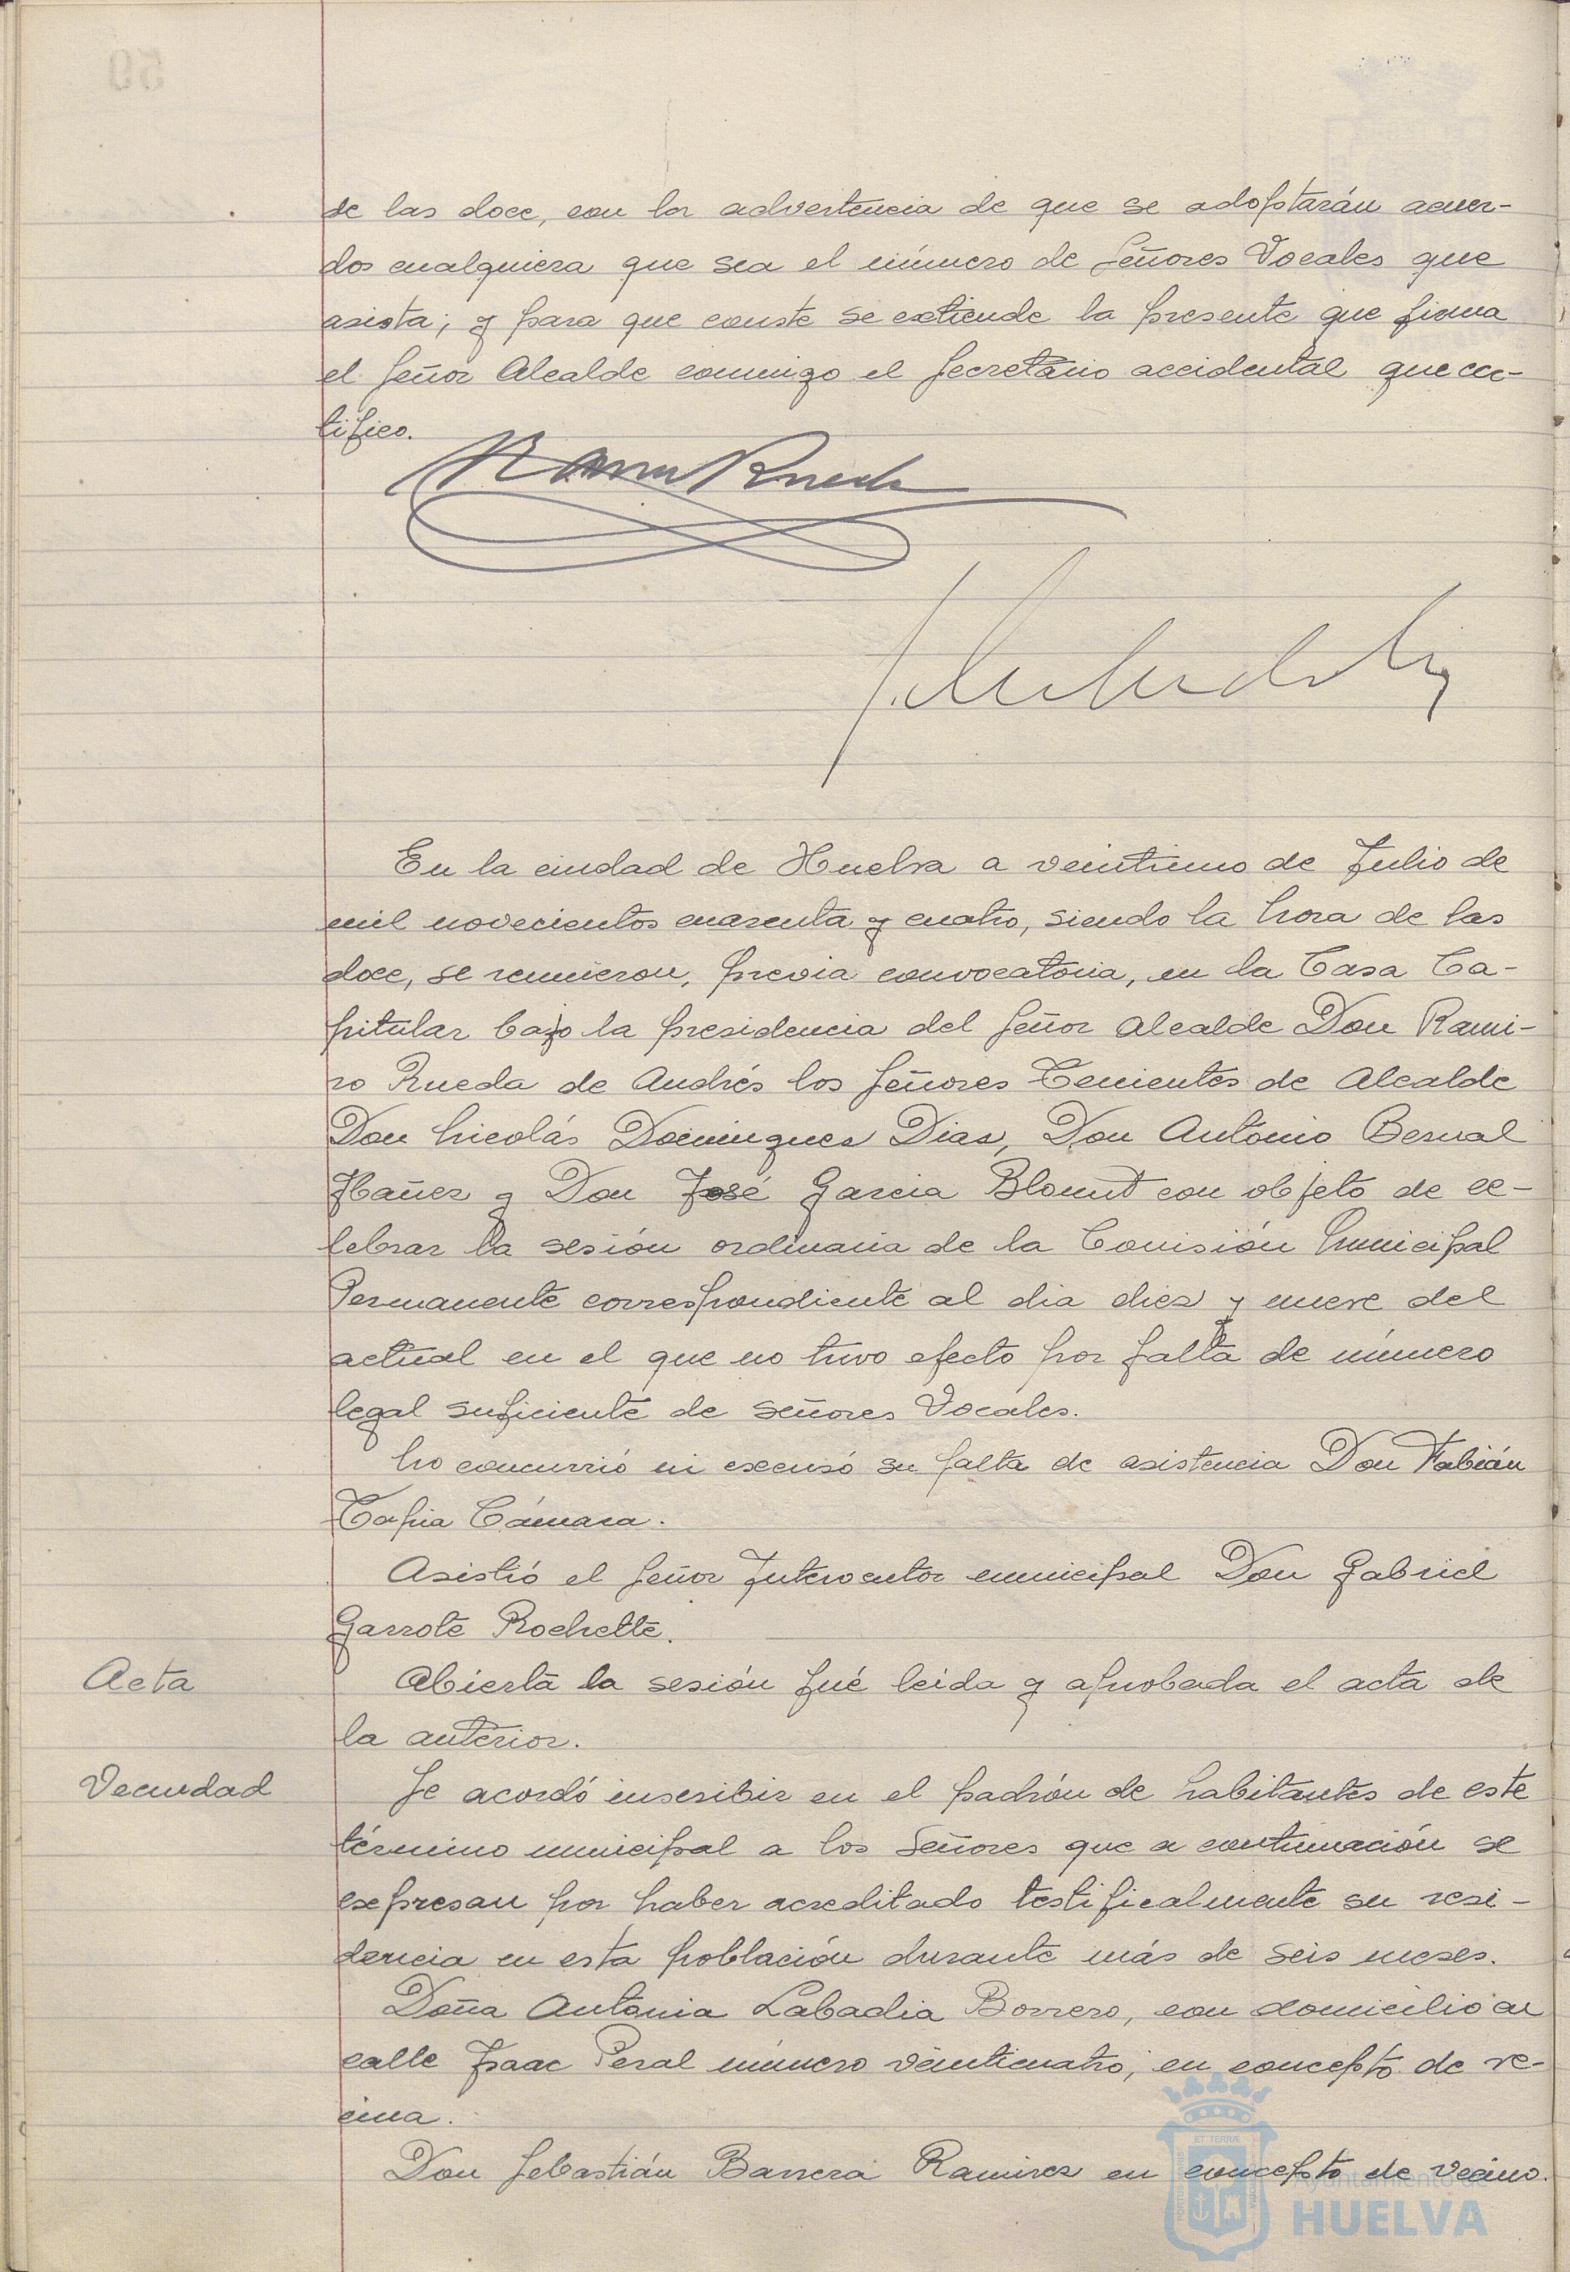 de las doce, con la advertencia de que se adoptarán acuer-
dos cualquiera que sea el número de Señores Vocales que
asista; y para que conste se extiende la presente que firma
el Señor Alcalde conmigo el Secretario accidental que cer-
tifico.
Ramiro Rueda
En la ciudad de Huelva a veintiuno de Julio de
mil novecientos cuarenta y cuatro, siendo la hora de las
doce, se reunieron, previa convocatoria, en la Casa Ca-
pitular bajo la presidencia del Señor Alcalde Don Rami-
ro Rueda de Andrés los Señores Tenientes de Alcalde
Don Nicolás Dominguez Dias, Don Antonio Bernal
Ibañez y Don José Garcia Blount con objeto de ce-
lebrar la sesión ordinaria de la Comisión Municipal
Permanente correspondiente al dia diez y nueve del
actual en el que no tuvo efecto por falta de número
legal suficiente de señores Vocales.
No concurrió ni excusó su falta de asistencia Don Fabián
Tapia Cámara.
Asistió el Señor Interventor municipal Don Gabriel
Garrote Rochette.
Acta
Abierta la sesión fué leida y aprobada el acta de
la anterior.
Vecindad
Se acordó inscribir en el padrón de habitantes de este
término municipal a los Señores que a continuación se
expresan por haber acreditado testificalmente su resi-
dencia en esta población durante más de seis meses.
Doña Antonia Labadia Borrero, con domicilio en
calle Isaac Peral número veinticuatro, en concepto de ve-
cina.
Don Sebastián Barrera Ramirez en concepto de vecino.
Ayuntamiento de
HUELVA